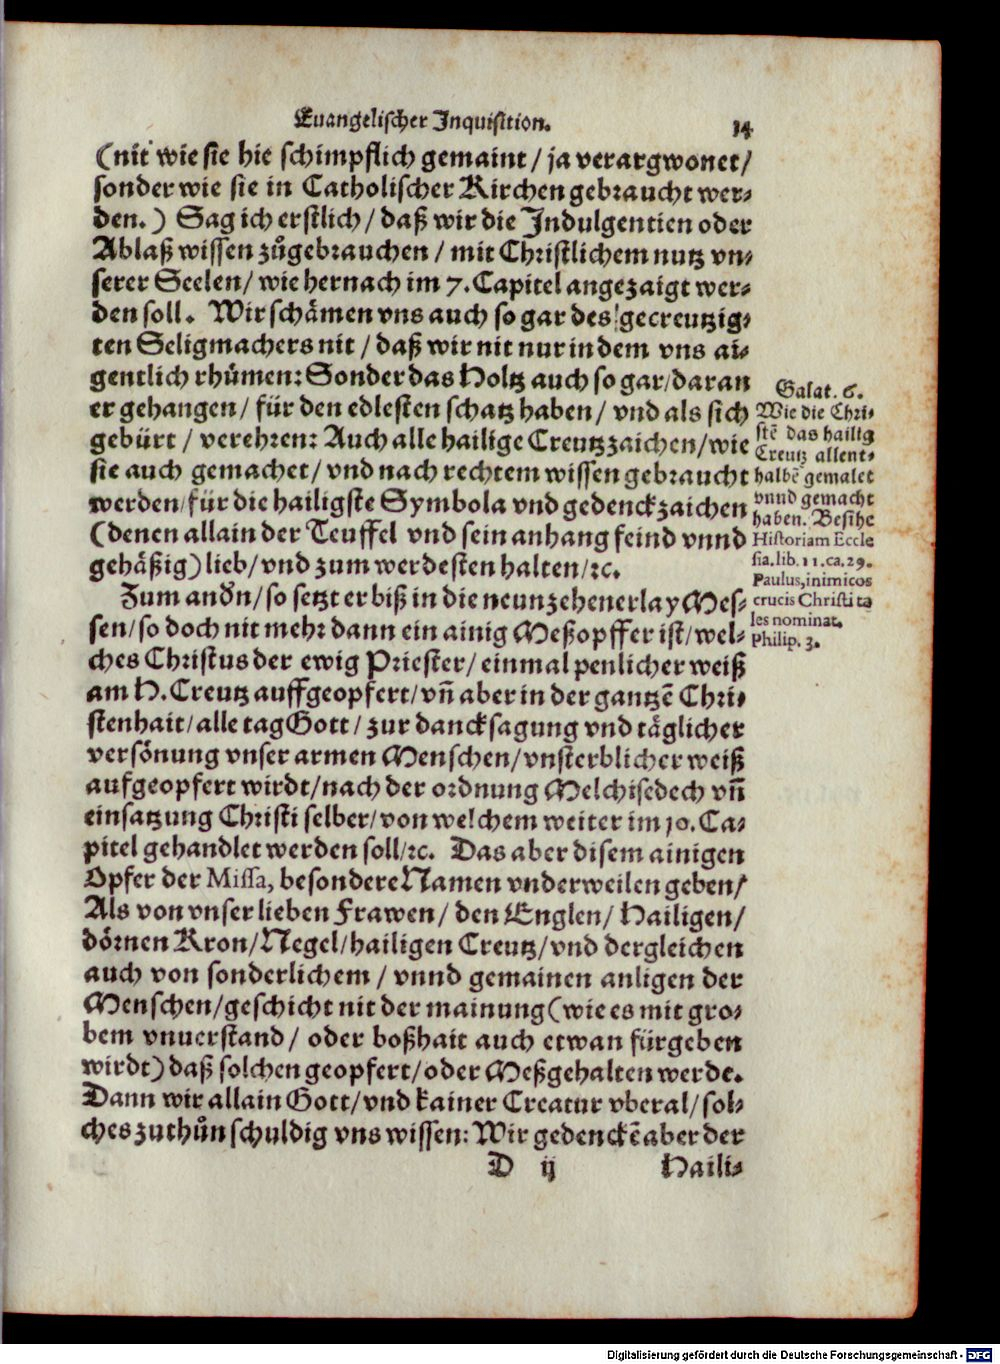 Euangelischer Inquisition. 14
(nit wie sie hie schimpflich gemaint / ja verargwonet /
sonder wie sie in Catholischer Kirchen gebraucht wer-
den.) Sag ich erstlich / daß wir die Indulgentien oder
Ablaß wissen zůgebrauchen / mit Christlichem nutz vn-
serer Seelen / wie hernach im 7. Capitel angezaigt wer-
den soll. Wir schämen vns auch so gar des gecreutzig-
ten Seligmachers nit / daß wir nit nur in dem vns ai-
gentlich rhůmen: Sonder das Holtz auch so gar / daran
er gehangen / für den edlesten schatz haben / vnd als sich
gebürt / verehren: Auch alle hailige Creutzzaichen / wie
sie auch gemachet / vnd nach rechtem wissen gebraucht
werden / für die hailigste Symbola vnd gedenckzaichen
(denen allain der Teuffel vnd sein anhang feind vnnd
gehäßig) lieb / vnd zum werdesten halten / ꝛc.
Zum andn̄ / so setzt er biß in die neunzehenerlay Mes-
sen / so doch nit mehr dann ein ainig Meßopffer ist / wel-
ches Christus der ewig Priester / einmal penlicher weiß
am H. Creutz auffgeopfert / vñ aber in der gantzē Chri-
stenhait / alle tag Gott / zur dancksagung vnd täglicher
versönung vnser armen Menschen / vnsterblicher weiß
aufgeopfert wirdt / nach der ordnung Melchisedech vñ
einsatzung Christi selber / von welchem weiter im 10. Ca-
pitel gehandlet werden soll / ꝛc. Das aber disem ainigen
Opfer der Missa, besondere Namen vnderweilen geben /
Als von vnser lieben Frawen / den Englen / Hailigen /
dörnen Kron / Negel / hailigen Creutz / vnd dergleichen
auch von sonderlichem / vnnd gemainen anligen der
Menschen / geschicht nit der mainung (wie es mit gro-
bem vnuerstand / oder boßhait auch etwan fürgeben
wirdt) daß solchen geopfert / oder Meßgehalten werde.
Dann wir allain Gott / vnd kainer Creatur vberal / sol-
ches zuthůn schuldig vns wissen: Wir gedenckē aber der
D ij Haili-
Galat. 6.
Wie die Chri-
stē das hailig
Creutz allent-
halbē gemalet
vnnd gemacht
haben. Besihe
Historiam Eccle
sia. lib. 11. ca. 29.
Paulus, inimicos
crucis Christi ta
les nominat.
Philip. 3.
Digitalisierung gefördert durch die Deutsche Forschungsgemeinschaft - DFG